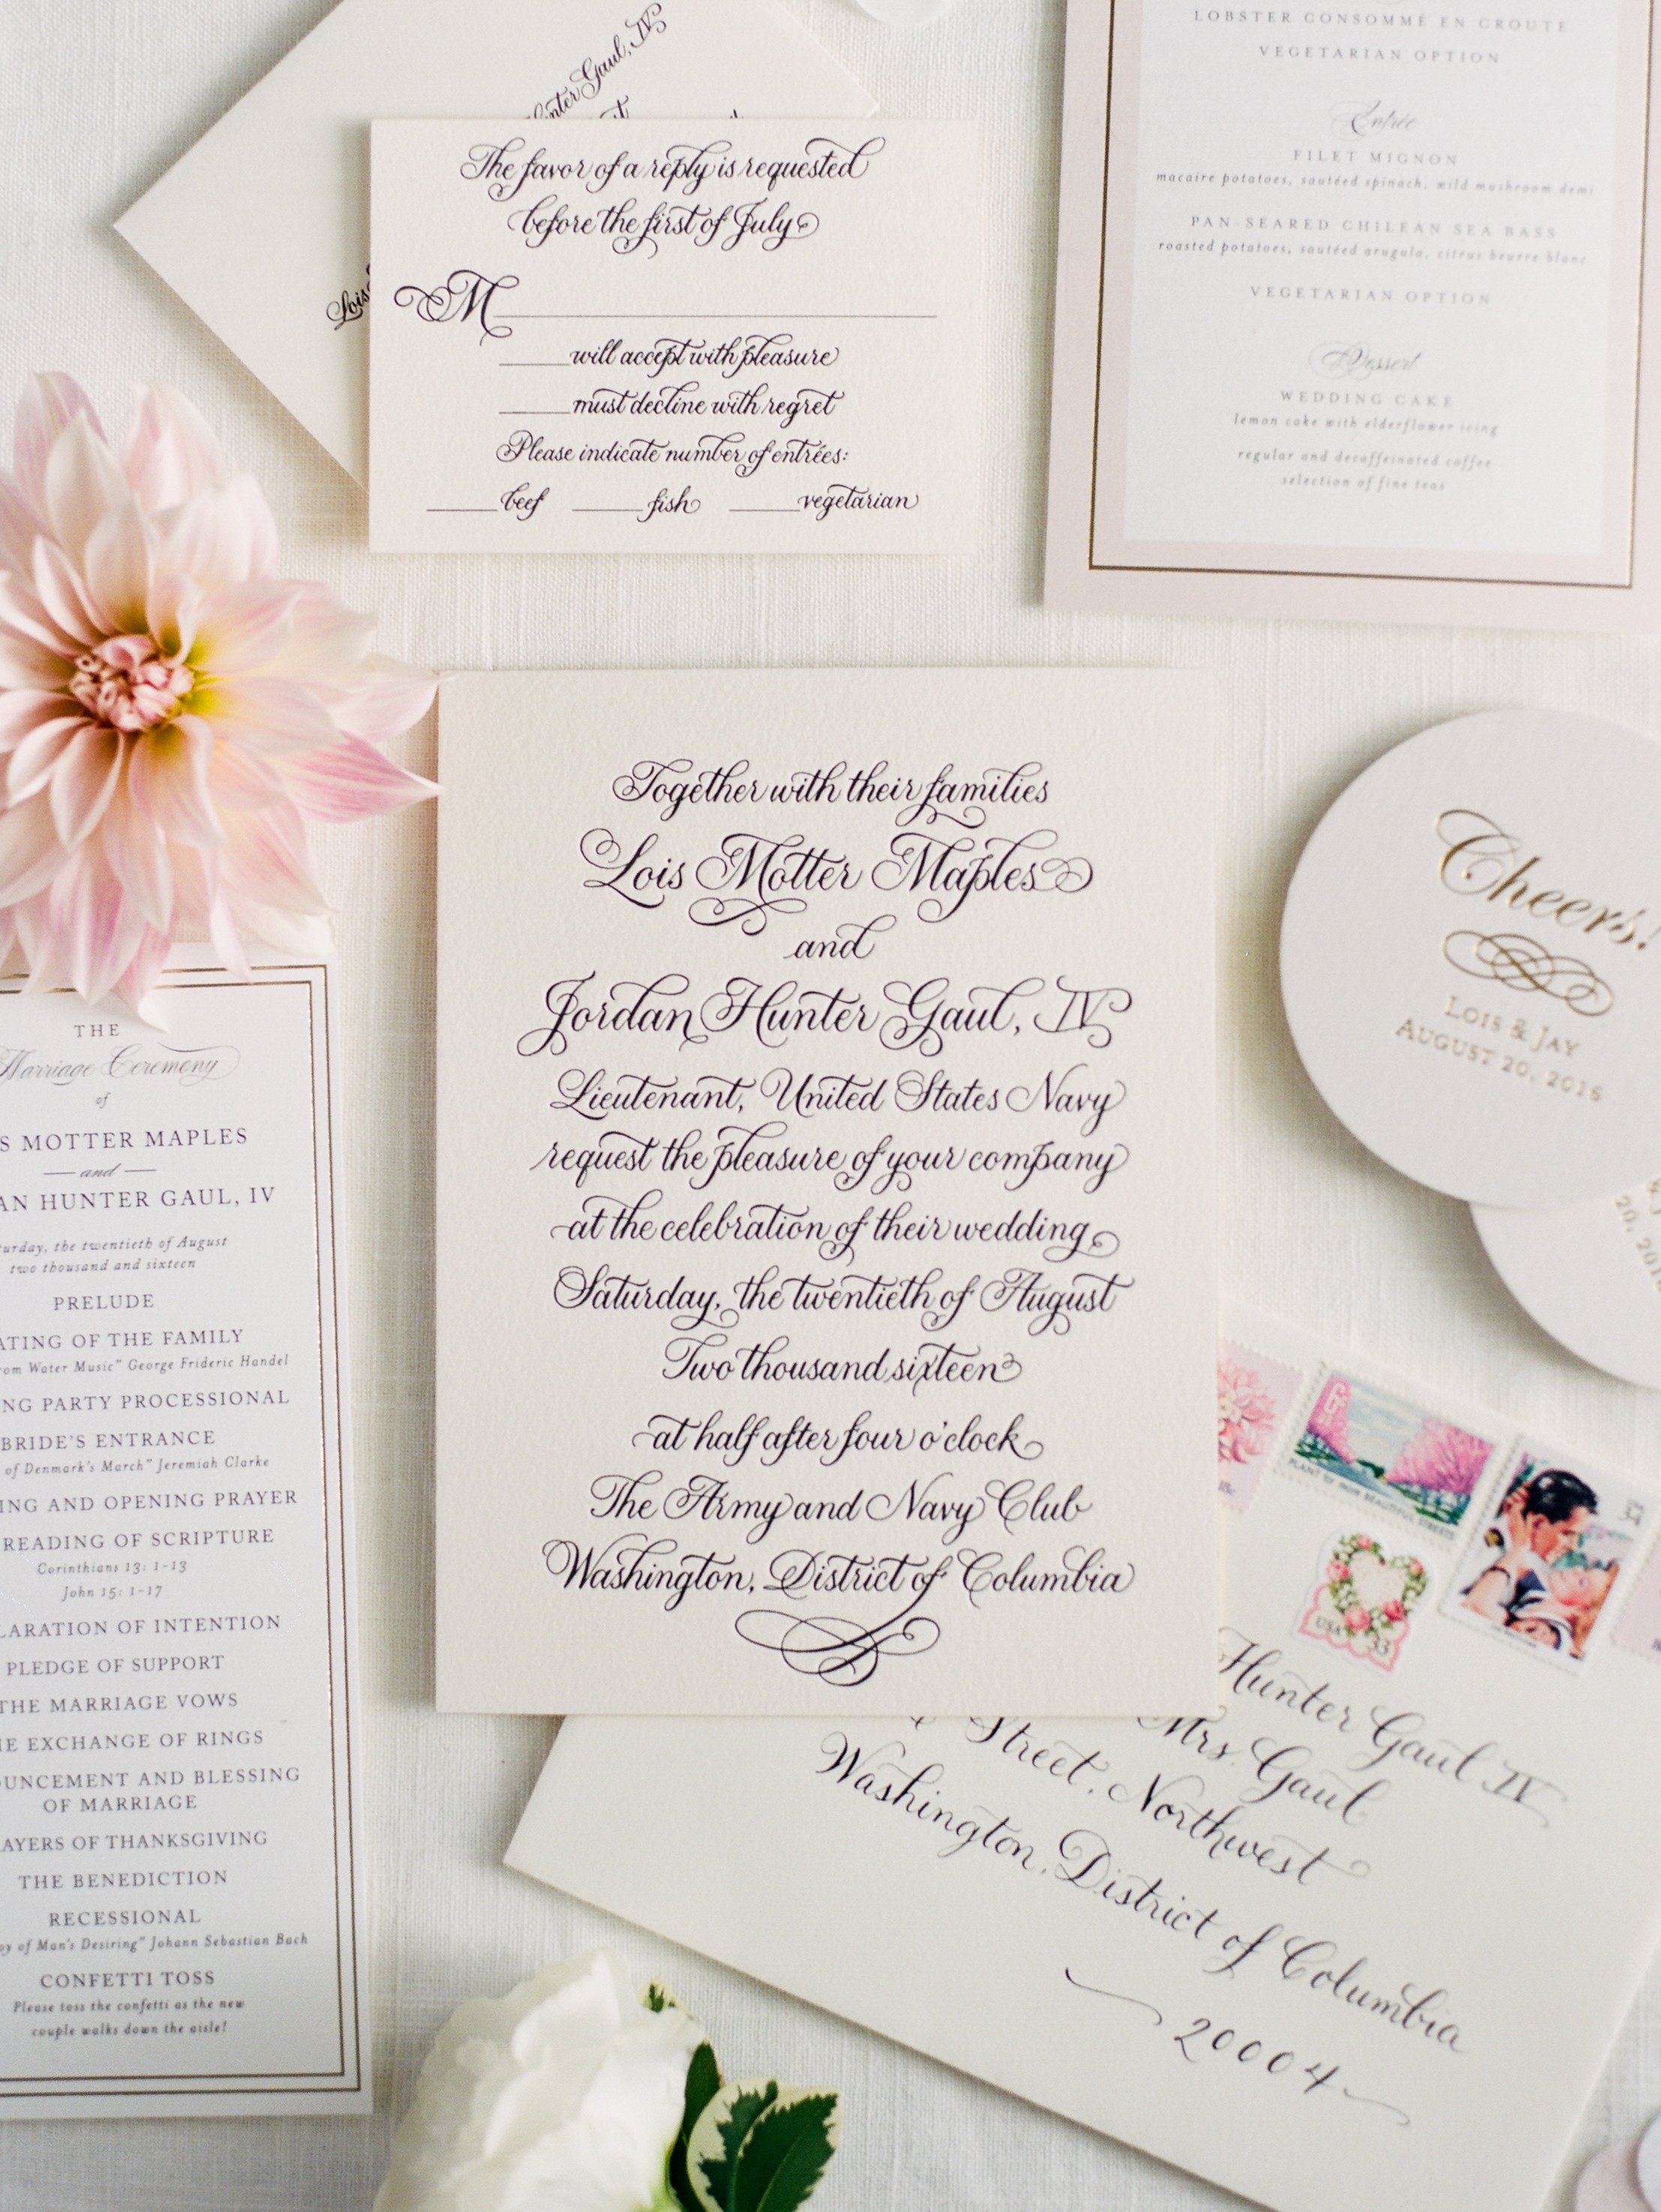 Hunter Gaul, IV
Lois
The favor of a reply is requested
before the first of July
M
will accept with pleasure
must decline with regret
Please indicate number of entrées:
beef fish vegetarian
LOBSTER CONSOMMÉ EN CROUTE
VEGETARIAN OPTION
Entrée
FILET MIGNON
macaire potatoes, sautéed spinach, wild mushroom demi
PAN-SEARED CHILEAN SEA BASS
roasted potatoes, sautéed arugula, citrus beurre blanc
VEGETARIAN OPTION
Dessert
WEDDING CAKE
lemon cake with elderflower icing
regular and decaffeinated coffee
selection of fine teas
Together with their families
Lois Motter Maples
and
Jordan Hunter Gaul, IV
Lieutenant, United States Navy
request the pleasure of your company
at the celebration of their wedding
Saturday, the twentieth of August
Two thousand sixteen
at half after four o'clock
The Army and Navy Club
Washington, District of Columbia
Cheers!
LOIS & JAY
AUGUST 20, 2016
20, 2016
THE
Marriage Ceremony
of
S MOTTER MAPLES
and
AN HUNTER GAUL, IV
turday, the twentieth of August
two thousand and sixteen
PRELUDE
ATING OF THE FAMILY
rom Water Music" George Frideric Handel
NG PARTY PROCESSIONAL
BRIDE'S ENTRANCE
of Denmark's March" Jeremiah Clarke
ING AND OPENING PRAYER
READING OF SCRIPTURE
Corinthians 13: 1-13
John 15: 1-17
LARATION OF INTENTION
PLEDGE OF SUPPORT
THE MARRIAGE VOWS
HE EXCHANGE OF RINGS
OUNCEMENT AND BLESSING
OF MARRIAGE
AYERS OF THANKSGIVING
THE BENEDICTION
RECESSIONAL
oy of Man's Desiring" Johann Sebastian Bach
CONFETTI TOSS
Please toss the confetti as the new
couple walks down the aisle!
6¢
PLANT for MORE BEAUTIFUL STREETS
USA 33
Hunter Gaul IV
Mrs. Gaul
Street, Northwest
Washington, District of Columbia
20004